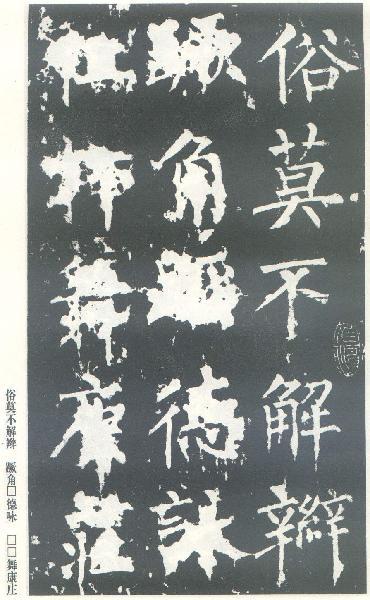 俗莫不解辮
蹶角□德詠
□□舞康庄
俗莫不解辮　蹶角□德咏　□□舞康庄